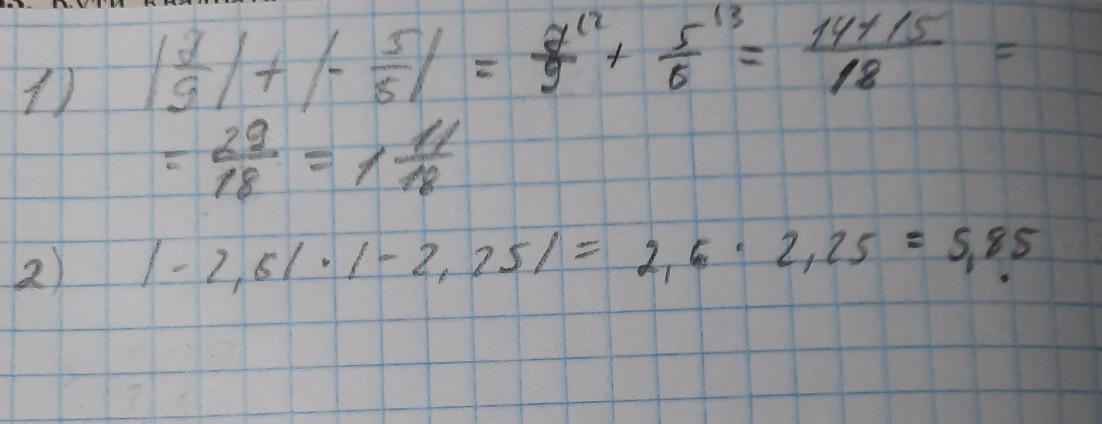 1) |7/9| + |- 5/6| = 7/9 (2 + 5/6 (3 = 14+15/18 =
= 29/18 = 1 11/18
2) |-2,6| · |-2,25| = 2,6 · 2,25 = 5,85